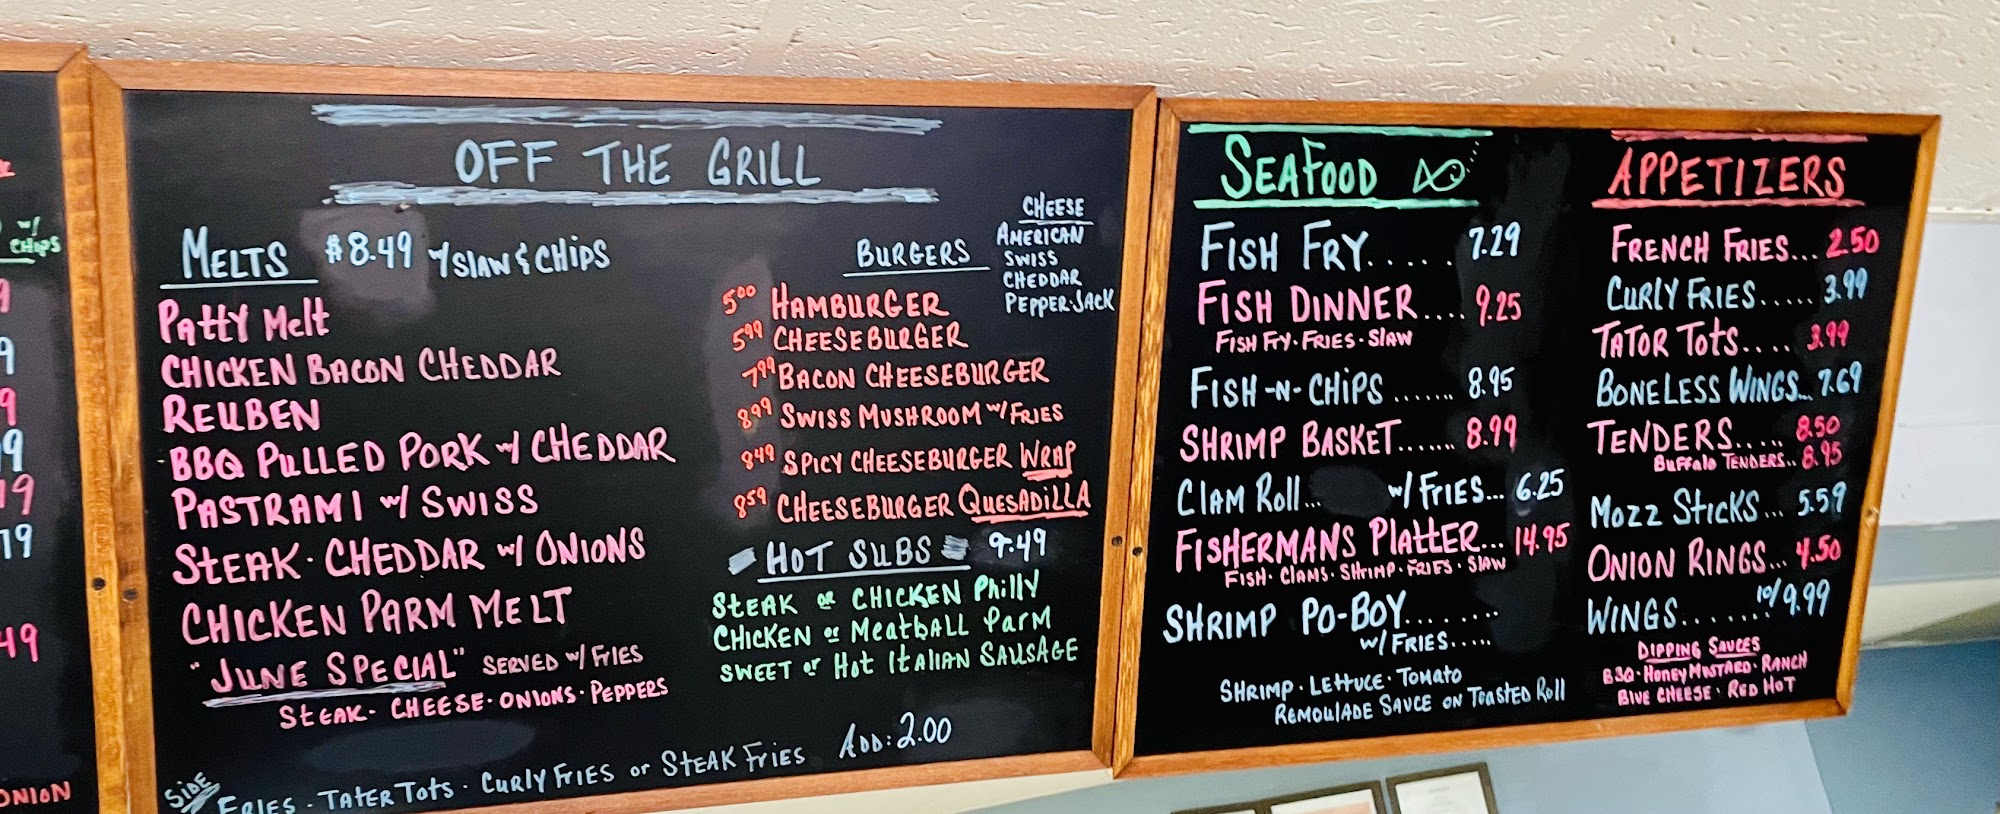 W/
CHIPS
9
9
9
19
19
19
49
ONION
OFF THE GRILL
MELTS $8.49 W/ SLAW & CHIPS
PATTY MELT
CHICKEN BACON CHEDDAR
REUBEN
BBQ PULLED PORK W/ CHEDDAR
PASTRAMI W/ SWISS
STEAK · CHEDDAR W/ ONIONS
CHICKEN PARM MELT
"JUNE SPECIAL" SERVED W/ FRIES
STEAK · CHEESE · ONIONS · PEPPERS
BURGERS
CHEESE
AMERICAN
SWISS
CHEDDAR
PEPPER·JACK
5.00 HAMBURGER
5.99 CHEESEBURGER
7.99 BACON CHEESEBURGER
8.99 SWISS MUSHROOM W/ FRIES
8.49 SPICY CHEESEBURGER WRAP
8.59 CHEESEBURGER QUESADILLA
HOT SUBS 9.49
STEAK OR CHICKEN PHILLY
CHICKEN OR MEATBALL PARM
SWEET OR HOT ITALIAN SAUSAGE
SIDE
FRIES · TATER TOTS · CURLY FRIES OR STEAK FRIES ADD: 2.00
SEAFOOD
FISH FRY..... 7.29
FISH DINNER.... 9.25
FISH FRY · FRIES · SLAW
FISH -N- CHIPS ....... 8.95
SHRIMP BASKET...... 8.99
CLAM ROLL... W/ FRIES... 6.25
FISHERMANS PLATTER... 14.95
FISH · CLAMS · SHRIMP · FRIES · SLAW
SHRIMP PO-BOY........
W/ FRIES.....
SHRIMP · LETTUCE · TOMATO
REMOULADE SAUCE ON TOASTED ROLL
APPETIZERS
FRENCH FRIES... 2.50
CURLY FRIES..... 3.99
TATOR TOTS.... 3.99
BONELESS WINGS... 7.69
TENDERS..... 8.50
BUFFALO TENDERS.. 8.95
MOZZ STICKS... 5.59
ONION RINGS... 4.50
WINGS....... 10/9.99
DIPPING SAUCES
BBQ · HONEY MUSTARD · RANCH
BLUE CHEESE · RED HOT